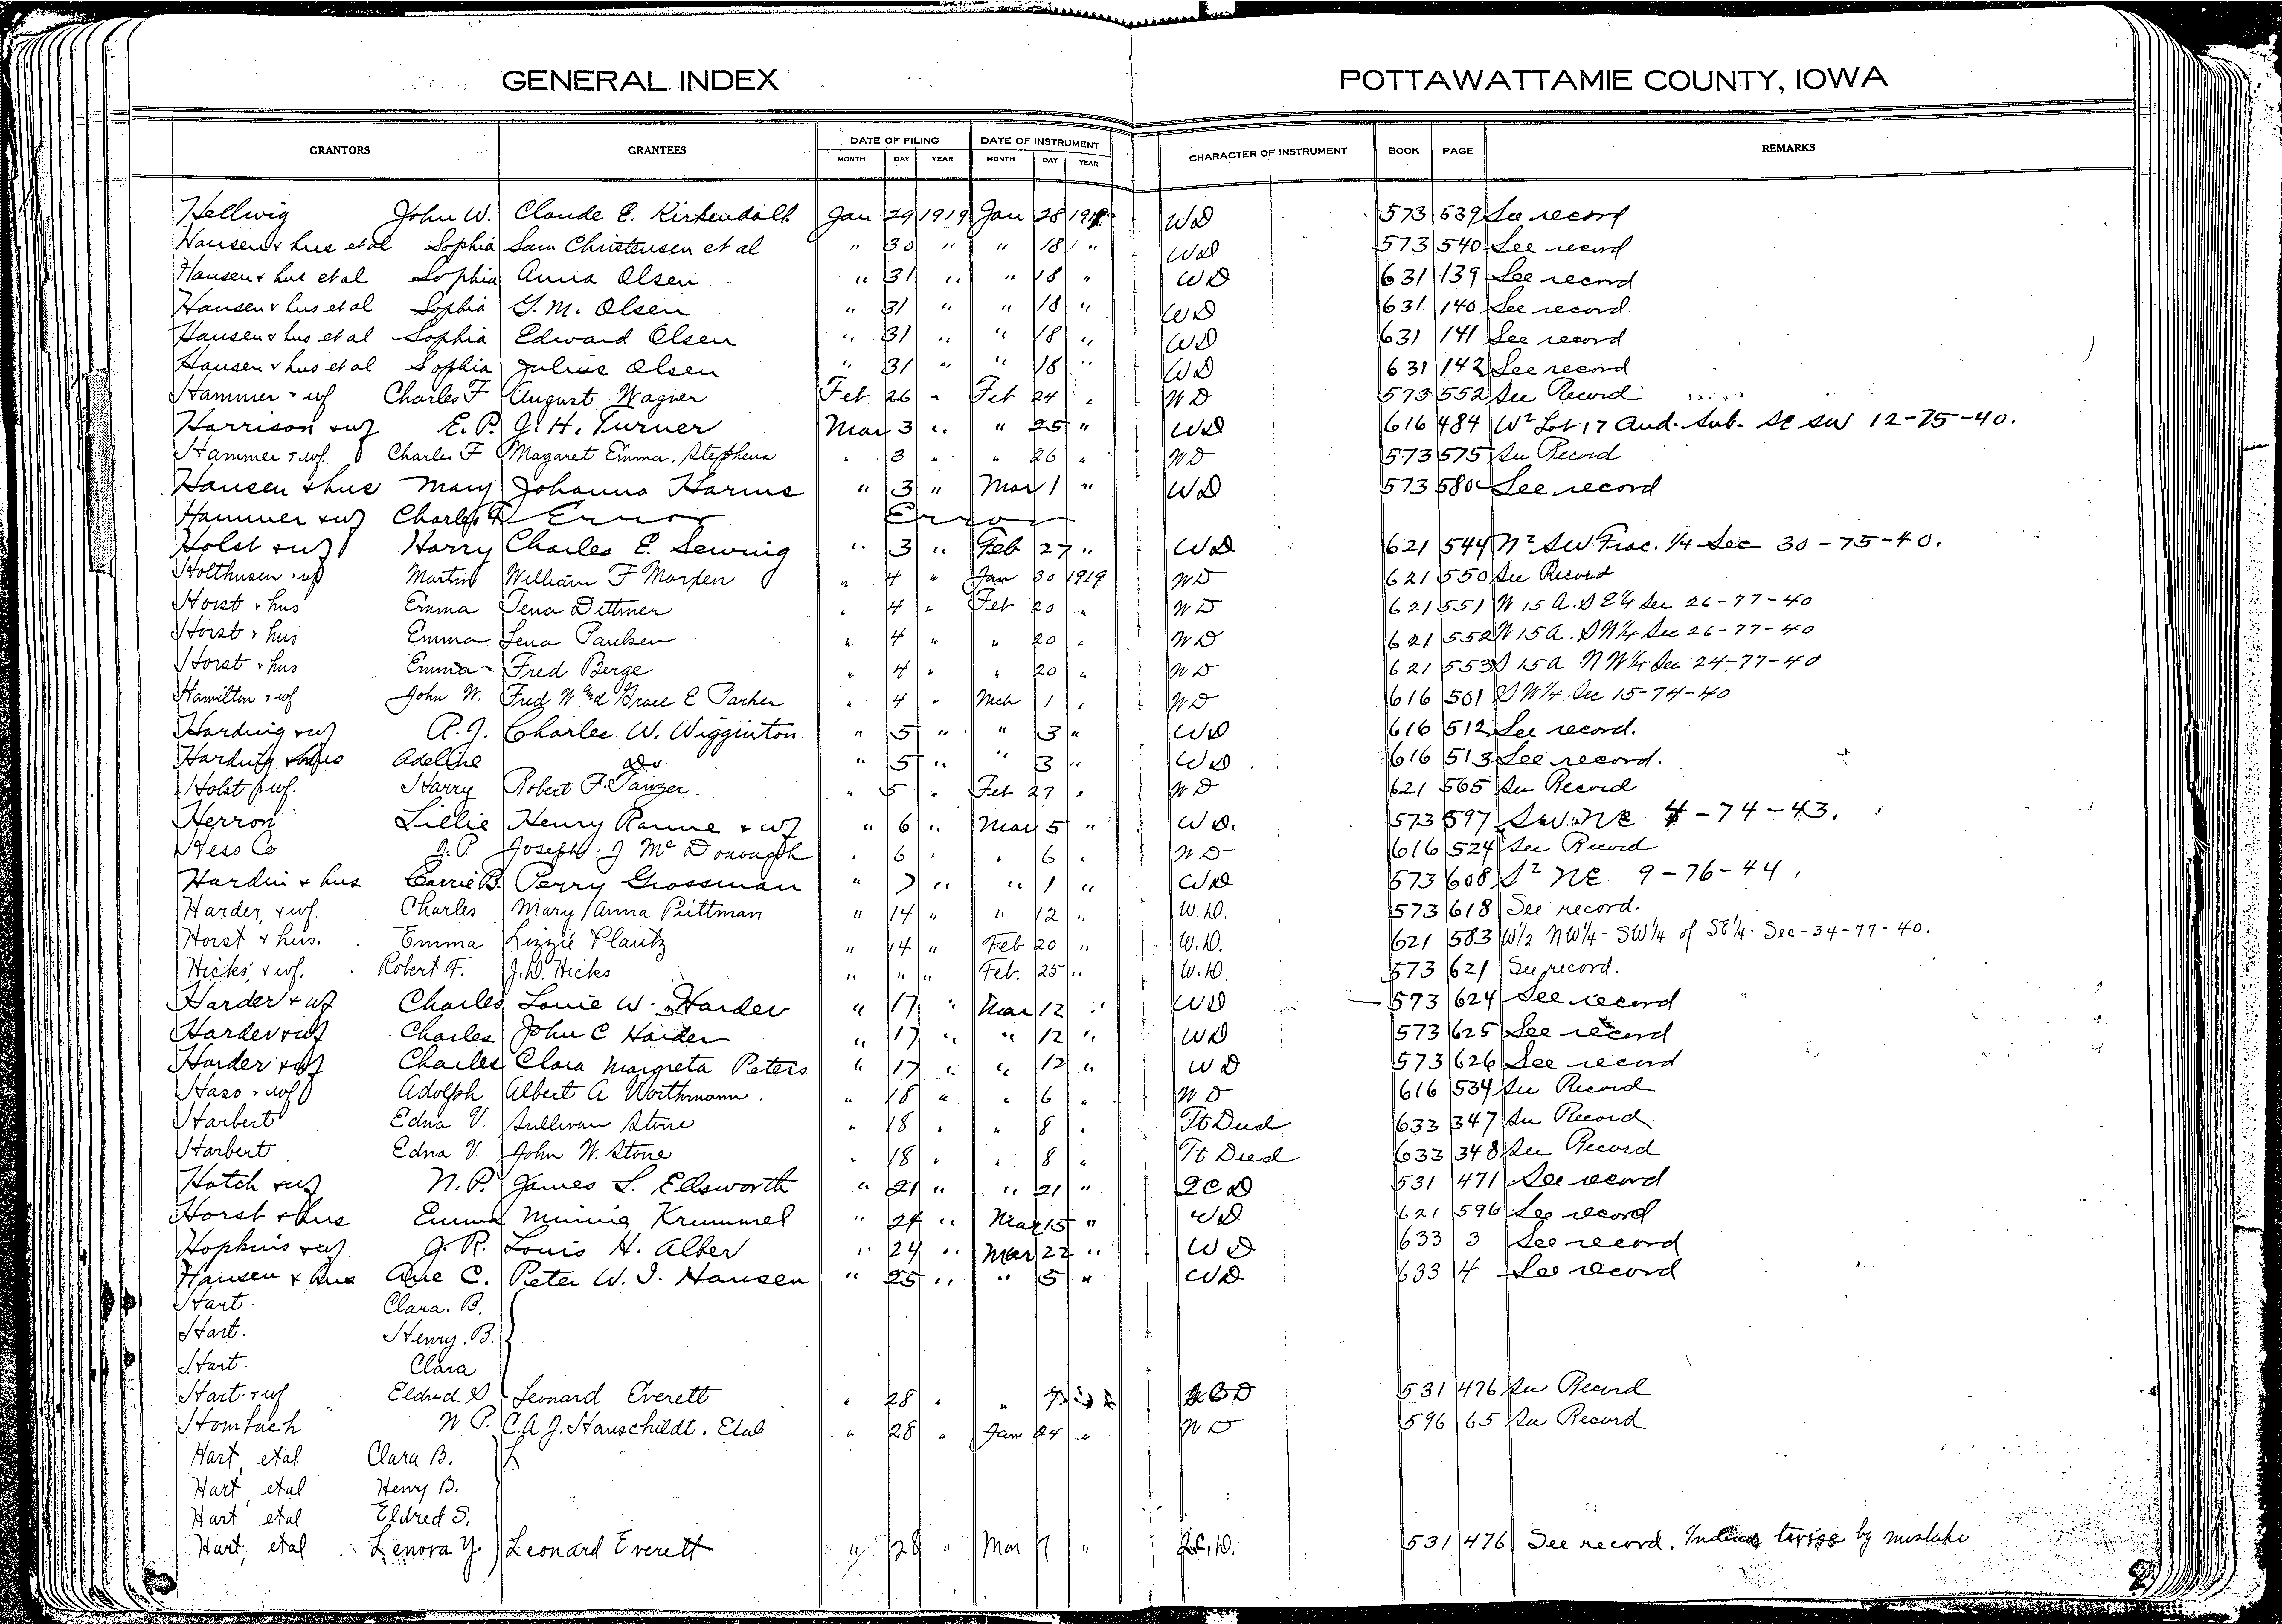 GENERAL INDEX
POTTAWATTAMIE COUNTY, IOWA
GRANTORS GRANTEES DATE OF FILING DATE OF INSTRUMENT CHARACTER OF INSTRUMENT BOOK PAGE REMARKS
MONTH DAY YEAR MONTH DAY YEAR
Hellwig John W. Claude E. Kirkendall Jan 29 1919 Jan 28 1919 WD 573 539 See record
Hansen & hus et al Sophia Sam Christensen et al " 30 " " 18 " WD 573 540 See record
Hansen & hus et al Sophia Anna Olsen " 31 " " 18 " WD 631 139 See record
Hansen & hus et al Sophia G. M. Olsen " 31 " " 18 " WD 631 140 See record
Hansen & hus et al Sophia Edward Olsen " 31 " " 18 " WD 631 141 See record
Hansen & hus et al Sophia Julius Olsen " 31 " " 18 " WD 631 142 See record
Hammer & wf Charles F August Wagner Feb 26 " Feb 24 " WD 573 552 See Record
Harrison & wf E. P. J. H. Turner Mar 3 " " 25 " WD 616 484 W² Lot 17 Aud. Sub. SE SW 12-75-40.
Hammer & wf. Charles F Magaret Emma Stephens " 3 " " 26 " WD 573 575 See Record
Hansen & hus Mary Johanna Harms " 3 " Mar 1 " WD 573 580 See record
Hammer & wf Charles F Error Error
Holst & wf Harry Charles E. Sewing " 3 " Feb 27 " WD 621 544 N² SW Frac. 1/4 Sec 30-75-40.
Holthusen & wf Martin William F Marxen " 4 " Jan 30 1919 WD 621 550 See Record
Horst & hus Emma Tena Dittmer " 4 " Feb 20 " WD 621 551 N 15 A. S E¼ Sec 26-77-40
Horst & hus Emma Lena Paulsen " 4 " " 20 " WD 621 552 N 15 A. S W¼ Sec 26-77-40
Horst & hus Emma Fred Berge " 4 " " 20 " WD 621 553 S 15 A N W¼ Sec 24-77-40
Hamilton & wf John W. Fred W and Grace E Parker " 4 " Mch 1 " WD 616 501 S W¼ Sec 15-74-40
Harding & wf A. J. Charles W. Wigginton " 5 " " 3 " WD 616 512 See record.
Harding & hus Adeline Do " 5 " " 3 " WD 616 513 See record.
Holst & wf. Harry Robert F. " 5 " Feb 27 " WD 621 565 See Record
Herron Lillie Henry Ranne & wf " 6 " Mar 5 " WD. 573 597 SW NE 4-74-43.
Hess Co J. P. Joseph J McDonough " 6 " " 6 " WD 616 524 See Record
Hardin & hus Carrie B. Perry Grossman " 7 " " 1 " WD 573 608 S² NE 9-76-44,
Harder, & wf. Charles Mary Anna Püttman " 14 " " 12 " W.D. 573 618 See record.
Horst & hus. Emma Lizzie Plautz " 14 " Feb 20 " W.D. 621 583 W½ NW¼ - SW¼ of SE¼. Sec-34-77-40.
Hicks, & wf. Robert F. J. D. Hicks " " " Feb. 25 " W.D. 573 621 See record.
Harder & wf Charles Louie W. Harder " 17 " Mar 12 " WD 573 624 See record
Harder & wf Charles John C Harder " 17 " " 12 " WD 573 625 See record
Harder & wf Charles Clara Margreta Peters " 17 " " 12 " WD 573 626 See record
Hass & wf Adolph Albert A Worthmann. " 18 " " 6 " WD 616 534 See Record
Harbert Edna V. Sullivan Stone " 18 " " 8 " Tt Deed 633 347 See Record
Harbert Edna V. John W. Stone " 18 " " 8 " Tt Deed 633 348 See Record
Hatch & wf N. P. James L. Ellsworth " 21 " " 21 " QCD 531 471 See record
Horst & hus Emma Minnie Krummel " 24 " Mar 15 " WD 621 596 See record
Hopkins & wf J. R. Louis H. Alber " 24 " Mar 22 " WD 633 3 See record
Hansen & hus Ane C. Peter W. I. Hansen " 25 " " 5 " WD 633 4 See record
Hart. Clara. B.
Hart. Henry. B.
Hart. Clara
Hart & wf Eldred. S Leonard Everett " 28 " " 7 QCD 531 476 See Record
Hombach W P. C. A J. Hanschildt. Etal " 28 " Jan 24 " WD 596 65 See Record
Hart, etal Clara B. L
Hart, etal Henry B.
Hart etal Eldred S.
Hart, etal Lenora Y. Leonard Everett " 28 " Mar 7 " QC.D. 531 476 See record. Indexed twice by mistake